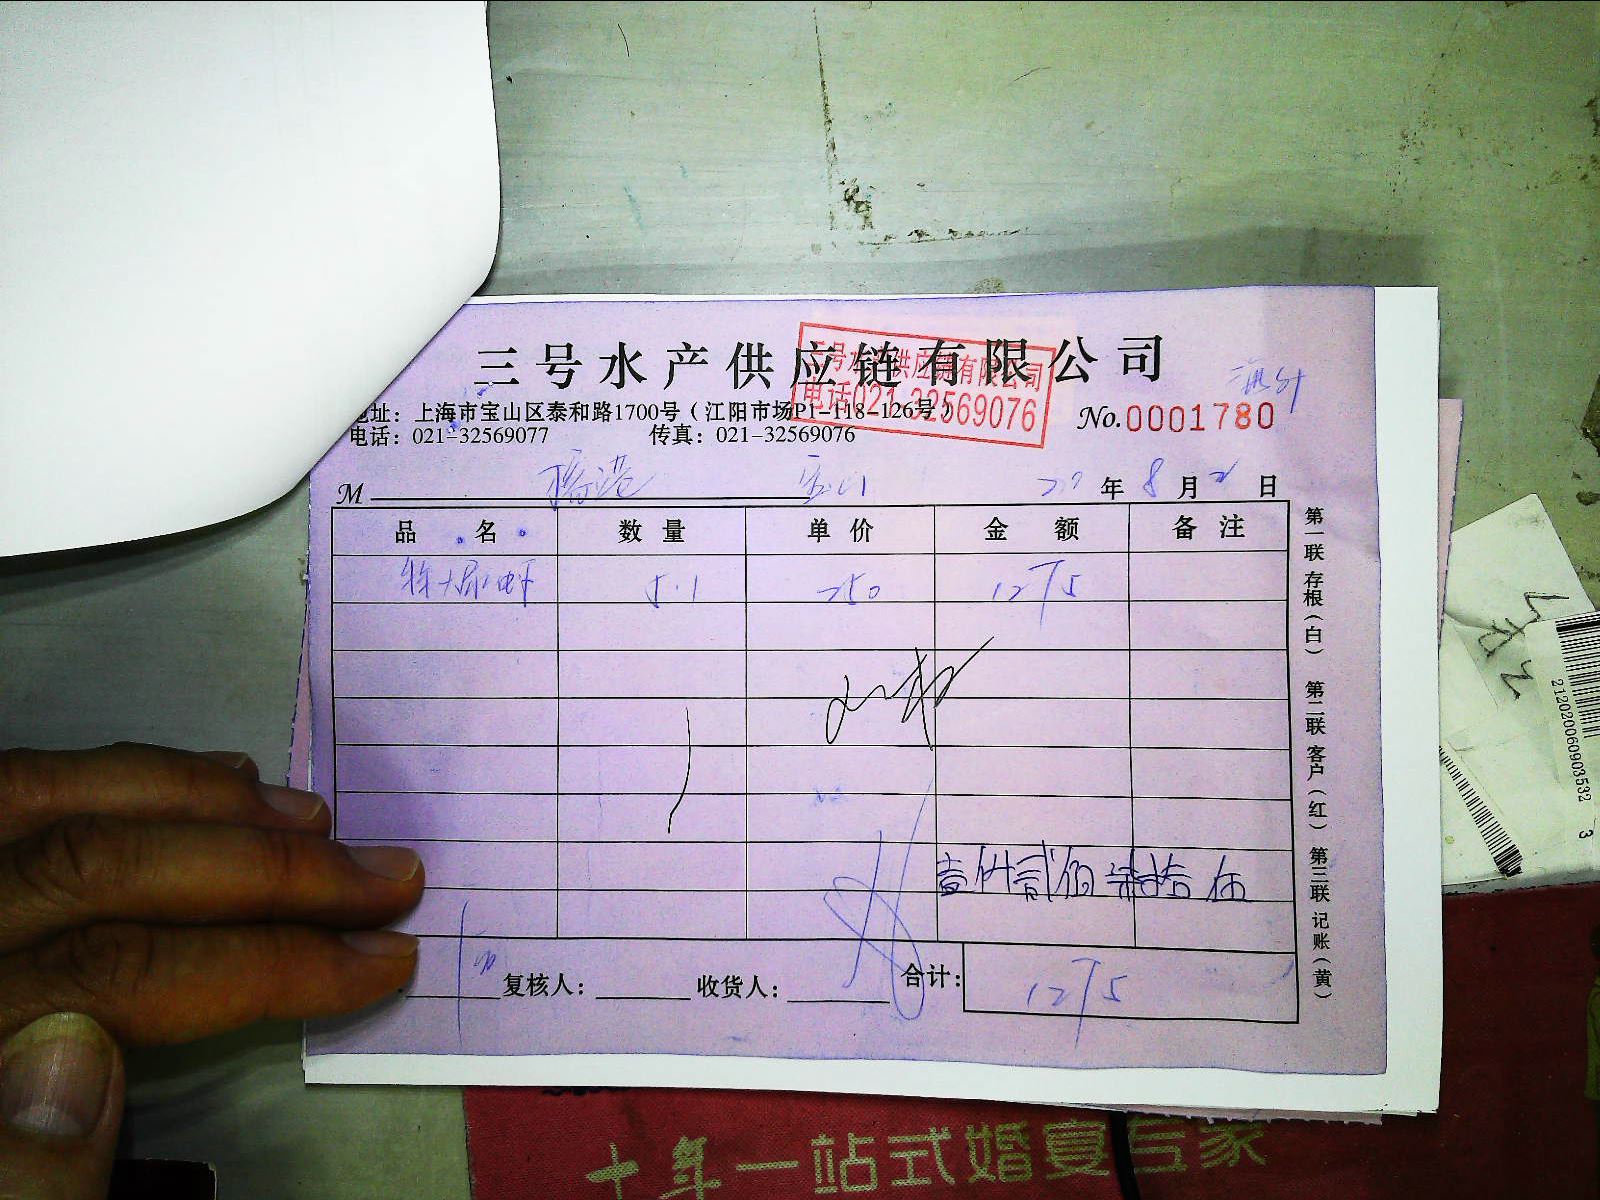 三号水产供应链有限公司
三号水产供应链有限公司
电话021-32569076
地址：上海市宝山区泰和路1700号（江阳市场P1-118-126号）
No.0001780
电话：021-32569077 传真：021-32569076
M 宝山 年 8 月 日
品名 数量 单价 金额 备注
5.1 250 1275
壹仟贰佰柒拾伍
复核人： 收货人： 合计： 1275
第一联 存根（白） 第二联 客户（红） 第三联 记账（黄）
212020060903532 3
十年一站式婚宴专家